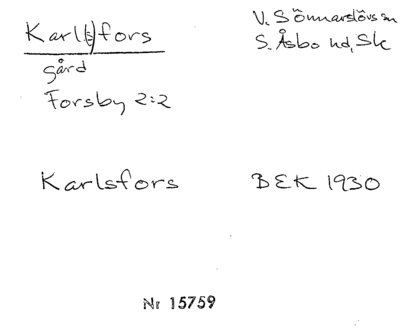 Karl(s)fors
V. Sönnarslövs sn
S. Åsbo hd, Sk
gård
Forsby 2:2
Karlsfors
BEK 1930
Nr 15759